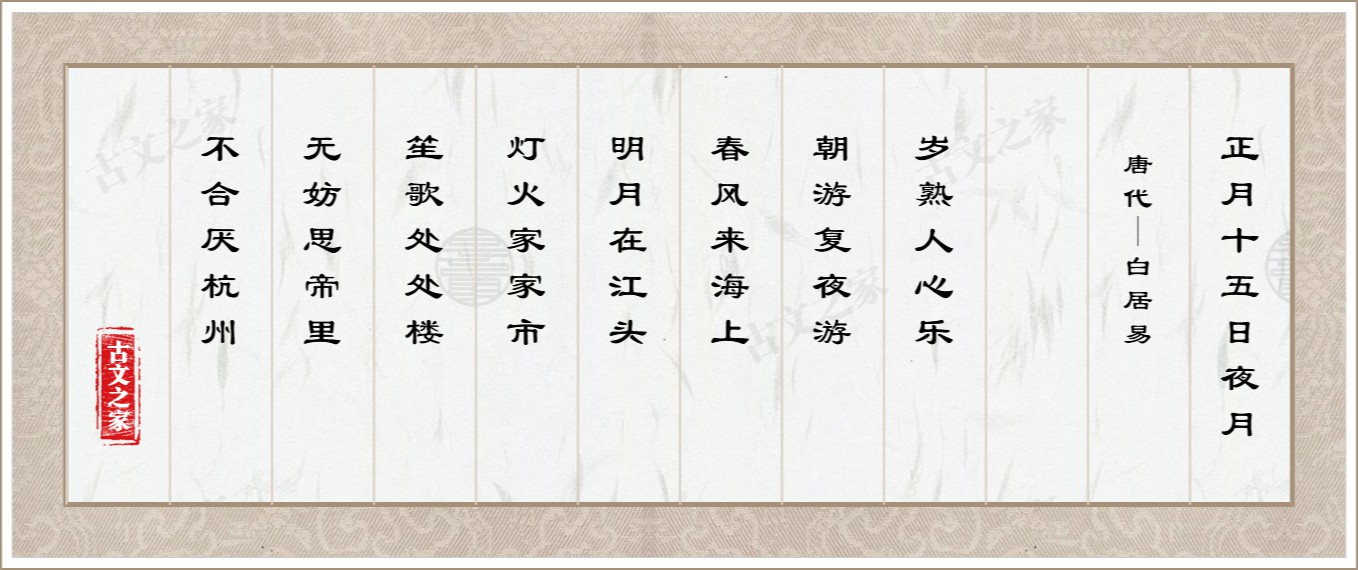 正月十五日夜月
唐代—白居易
岁熟人心乐
朝游复夜游
春风来海上
明月在江头
灯火家家市
笙歌处处楼
无妨思帝里
不合厌杭州
古文之家
古文之家
古文之家
古文之家